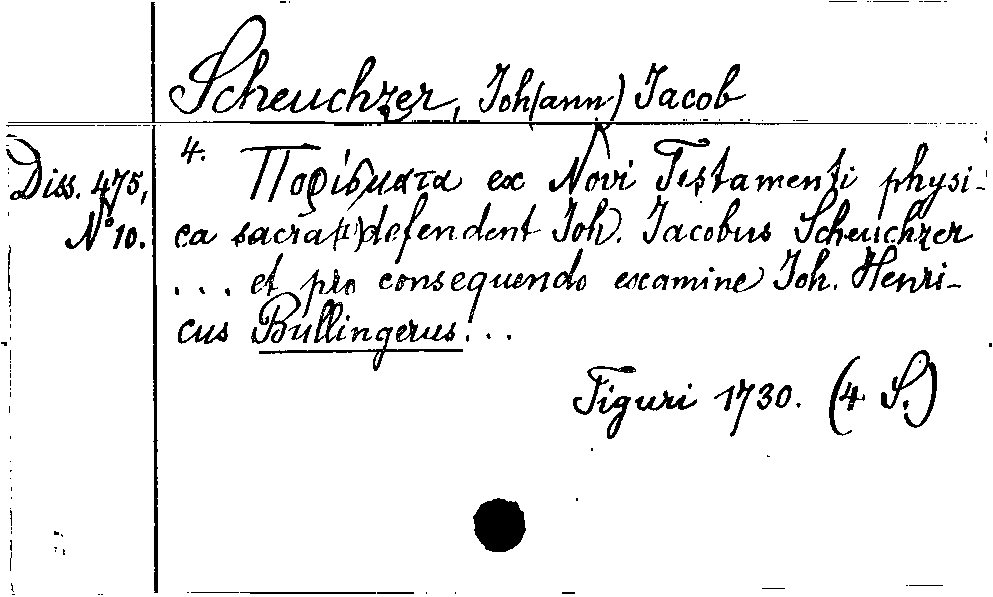 Scheuchzer, Joh(ann) Jacob
Diss. 475,
No 10.
4. Πορίσματα ex Novi Testamenti physi-
ca sacra(1) defendent Joh. Jacobus Scheuchzer
... et pro consequendo examine Joh. Henri-
cus Bullingerus...
Tiguri 1730. (4 S.)